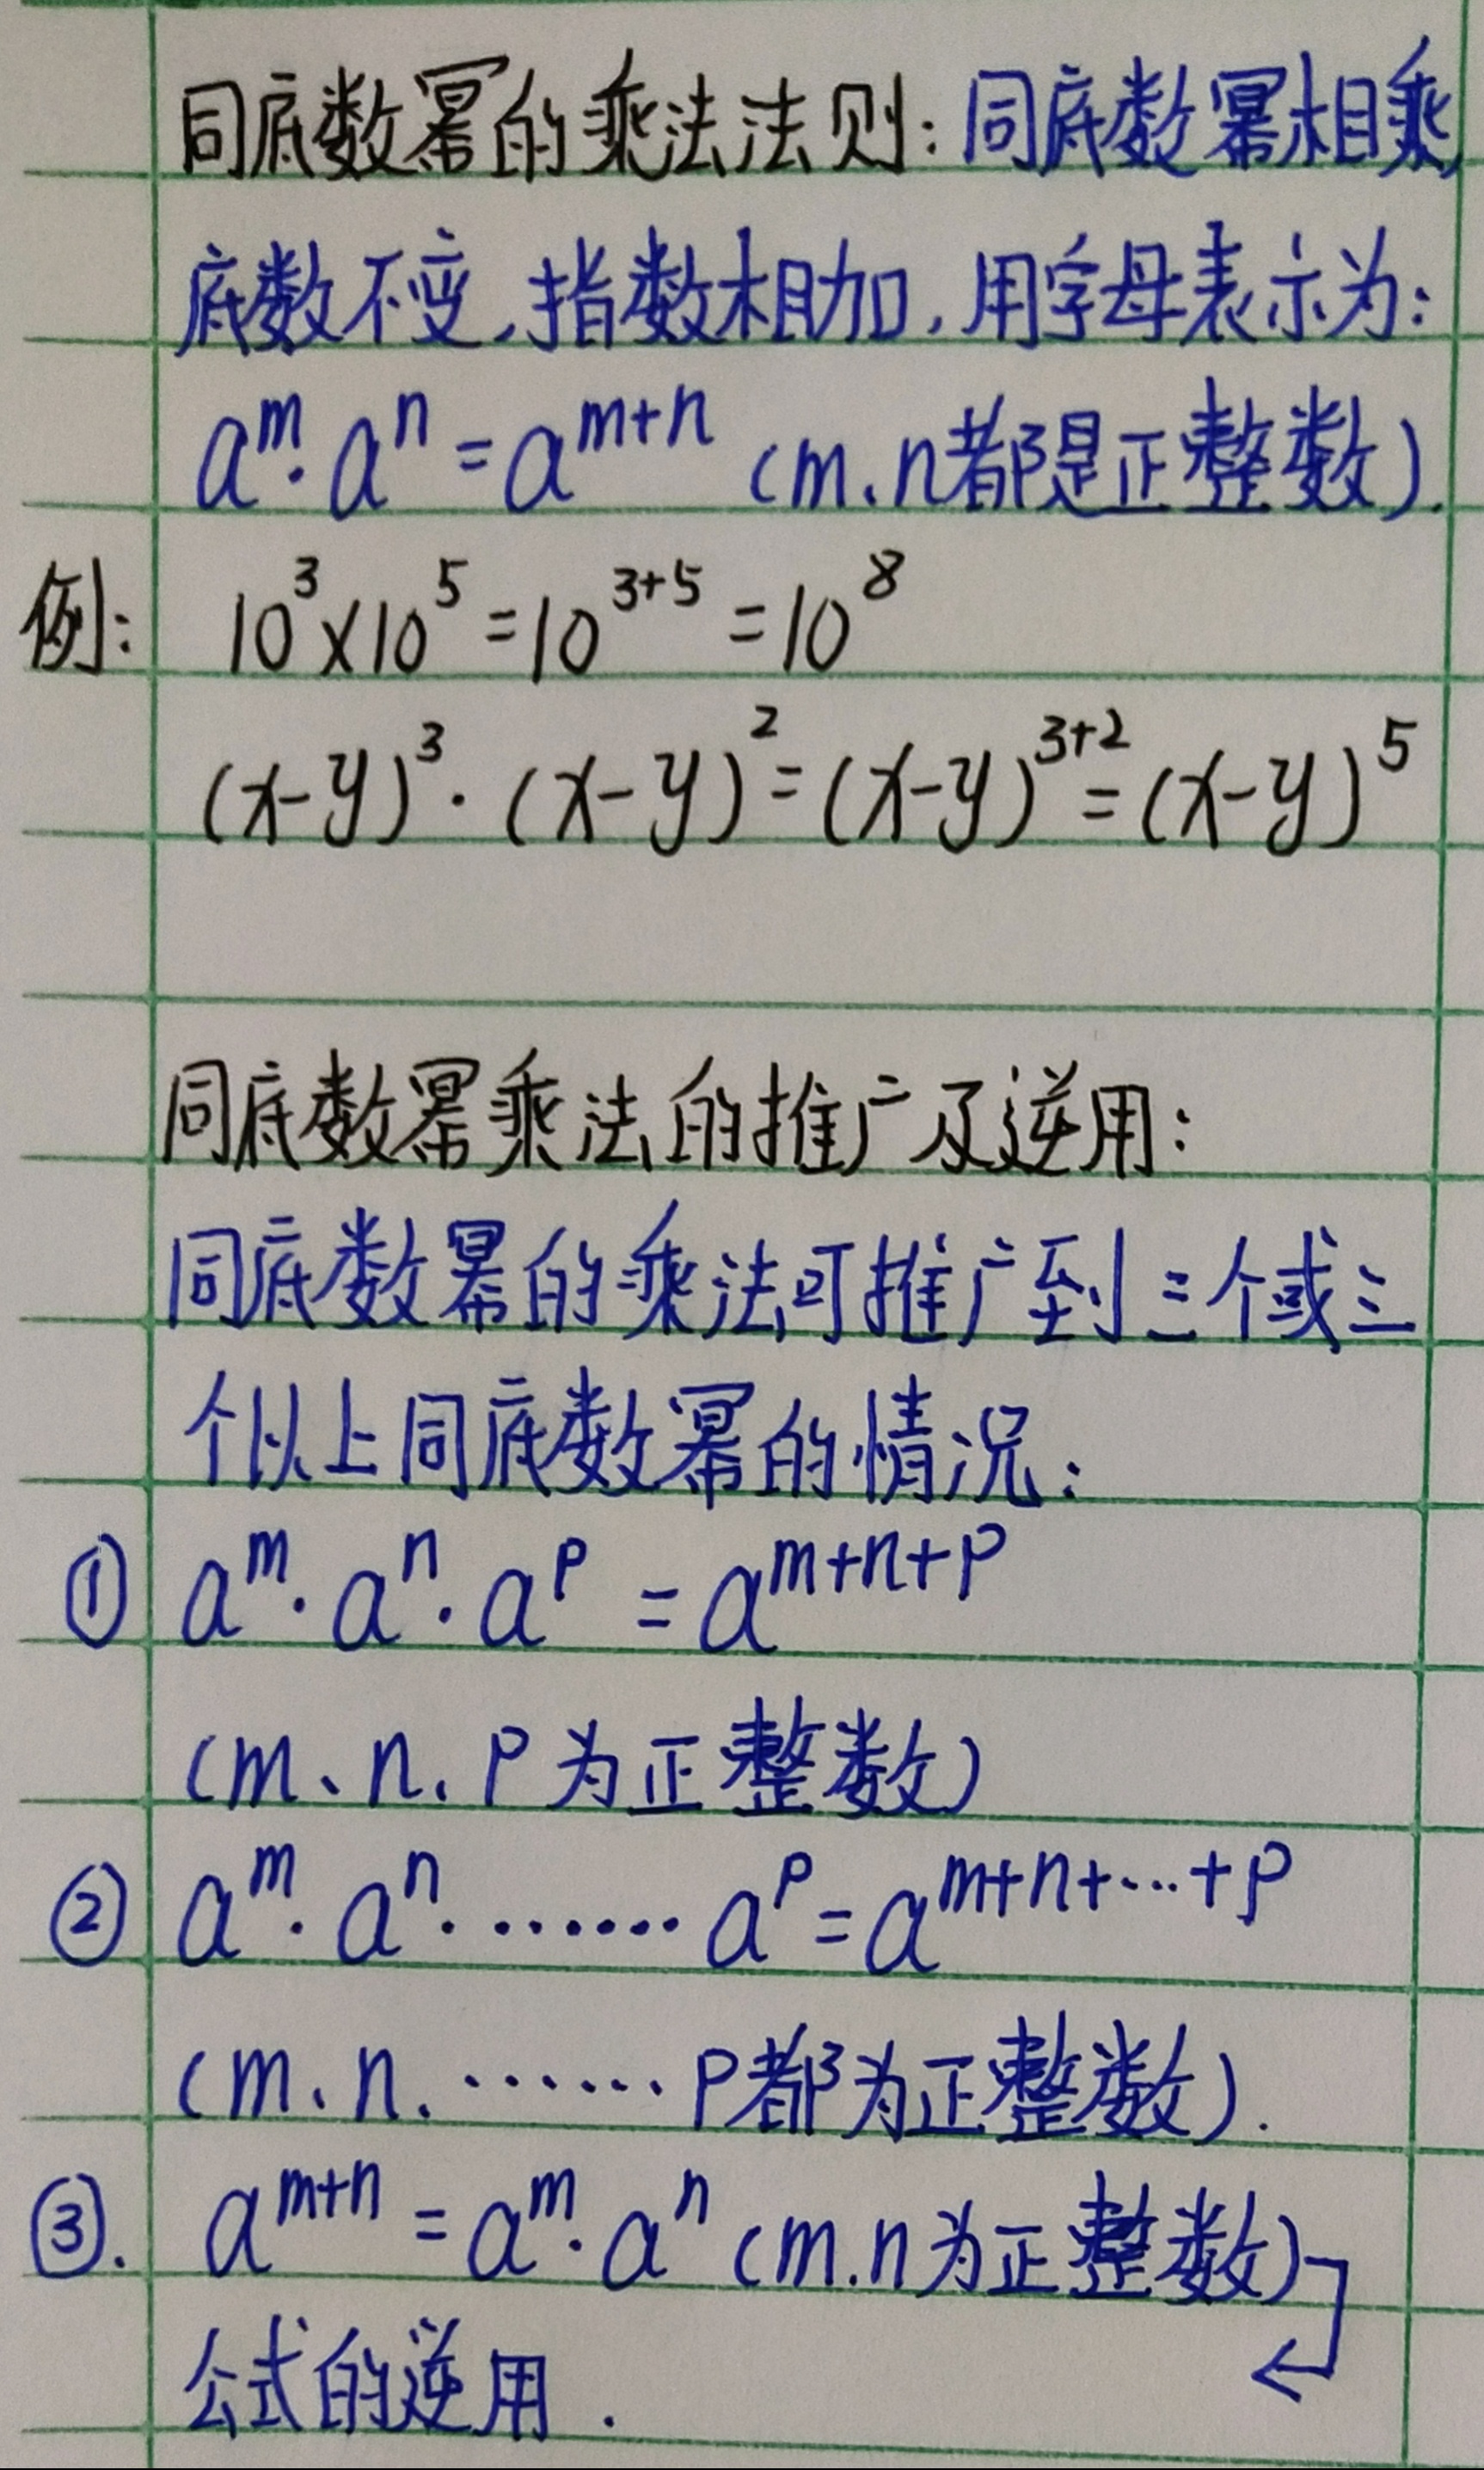 同底数幂的乘法法则：同底数幂相乘,
底数不变，指数相加，用字母表示为：
aᵐ·aⁿ=aᵐ⁺ⁿ（m、n都是正整数）.
例： 10³×10⁵=10³⁺⁵=10⁸
(x-y)³·(x-y)²=(x-y)³⁺²=(x-y)⁵
同底数幂乘法的推广及逆用：
同底数幂的乘法可推广到三个或三
个以上同底数幂的情况：
① aᵐ·aⁿ·aᵖ=aᵐ⁺ⁿ⁺ᵖ
（m、n、p为正整数）
② aᵐ·aⁿ·……aᵖ=aᵐ⁺ⁿ⁺…⁺ᵖ
（m、n、……p都为正整数）.
③. aᵐ⁺ⁿ=aᵐ·aⁿ（m.n为正整数）
公式的逆用.